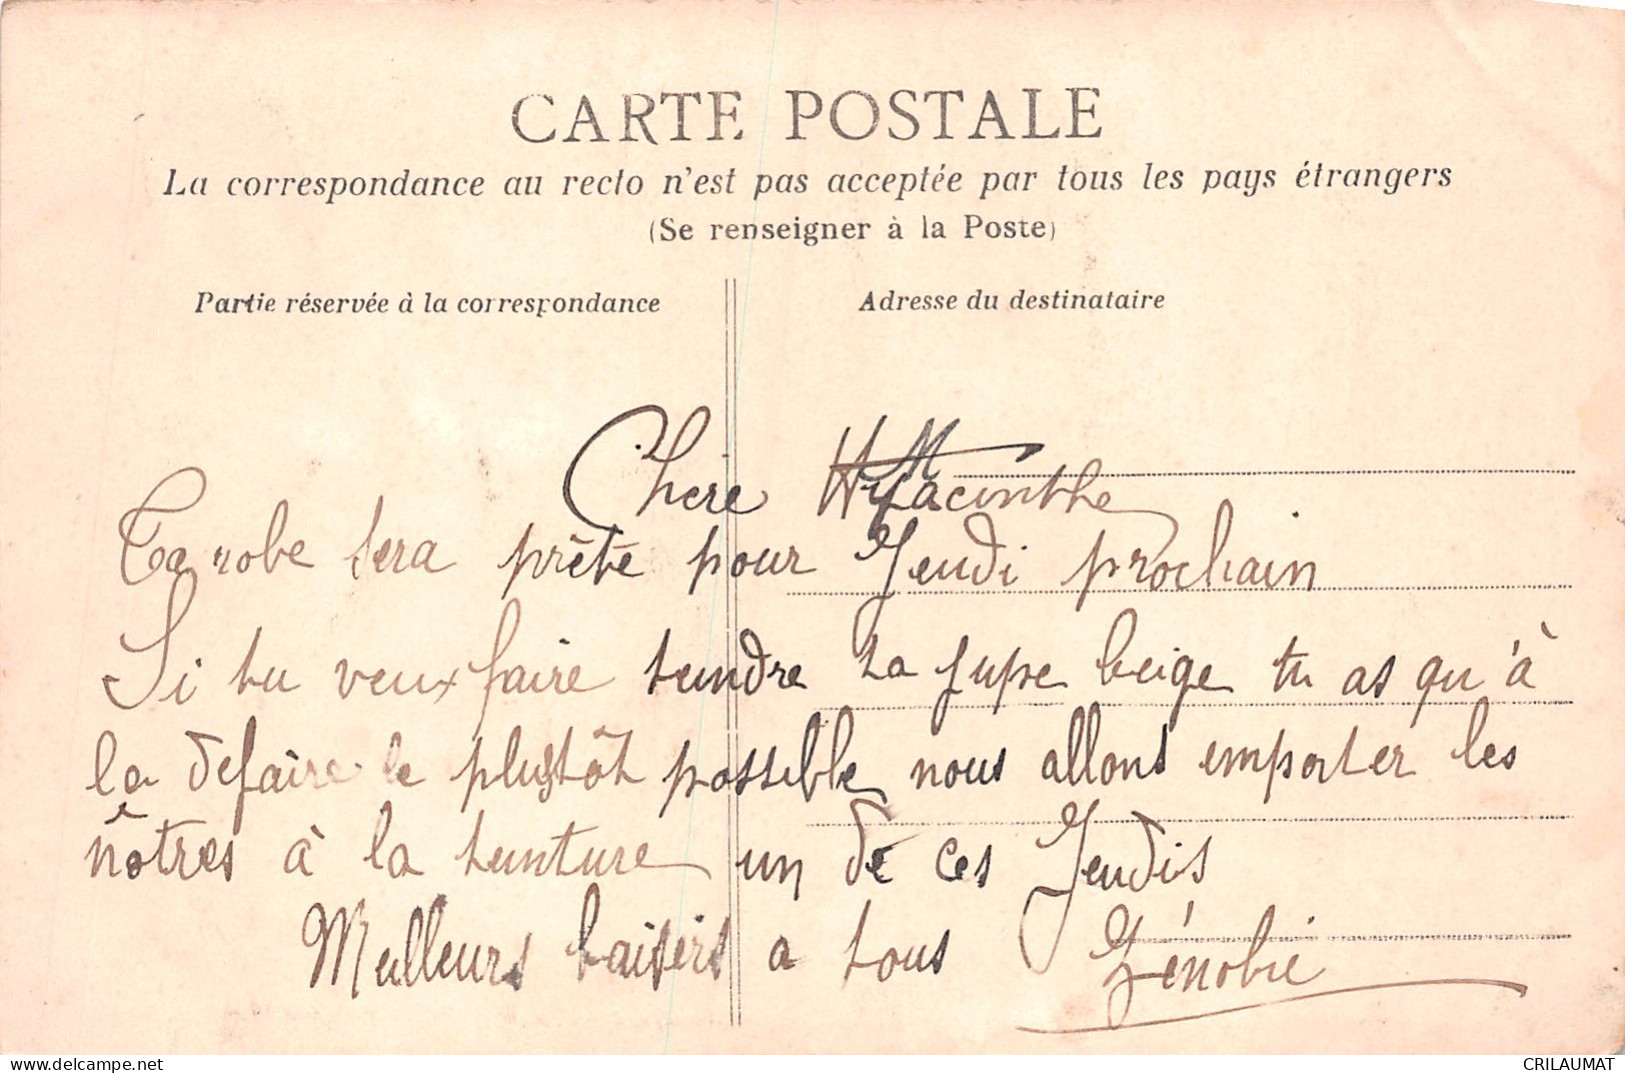 CARTE POSTALE
La correspondance au recto n'est pas acceptée par tous les pays étrangers
(Se renseigner à la Poste)
Partie réservée à la correspondance
Adresse du destinataire
Chère Hyacinthe
Ta robe sera prête pour Jeudi prochain
Si tu veux faire teindre ta jupe beige tu as qu'à
la défaire le plustôt possible nous allons emporter les
nôtres à la teinture un de ces Jeudis
Meilleurs baisers a tous Zénobie
www.delcampe.net
CRILAUMAT